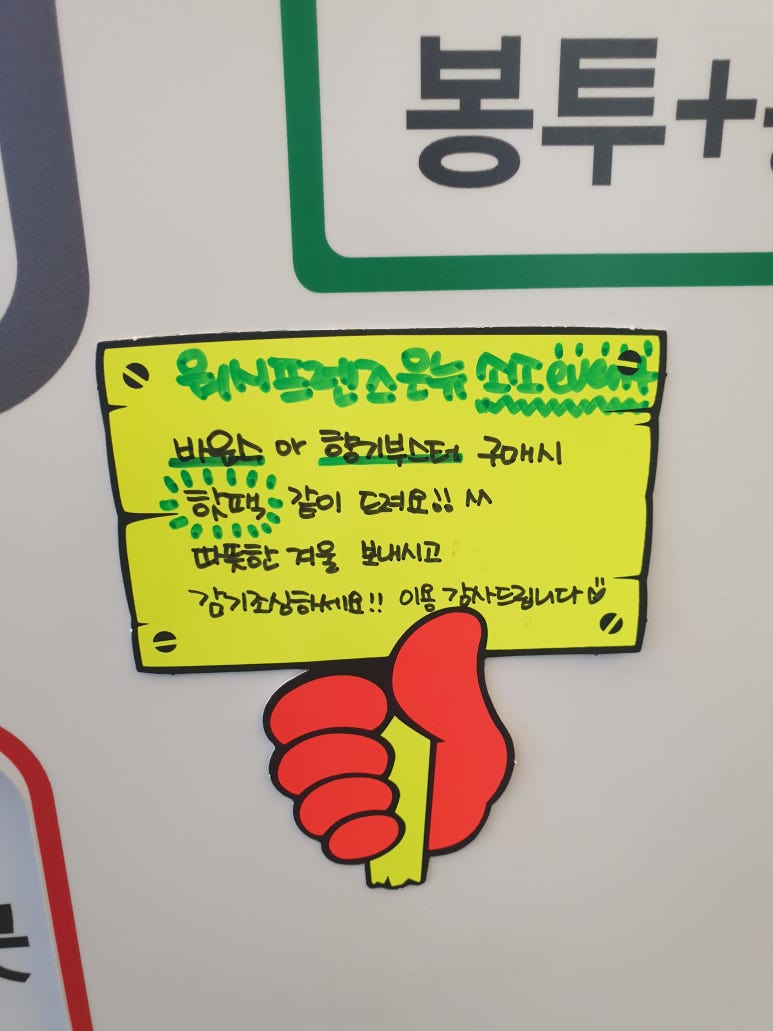 봉투+
워시프렌즈운뉴 소소event
바운스 아 향기부스터 구매시
핫팩 같이 드려요!! ^^
따뜻한 겨울 보내시고
감기조심하세요!! 이용 감사드립니다